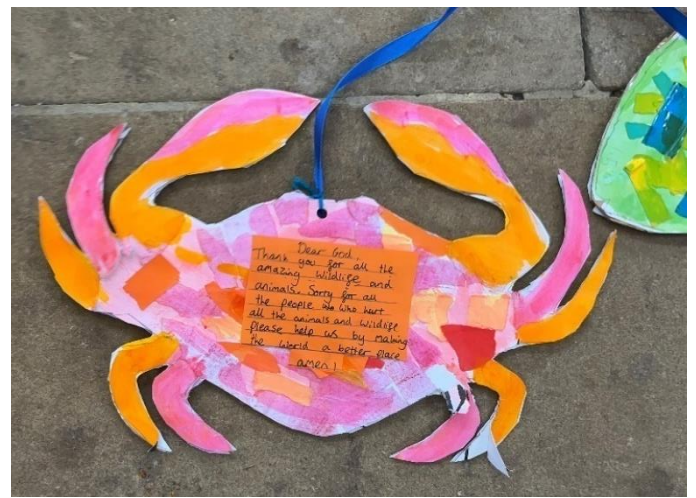 Dear God,
Thank you for all the
amazing wildlife and
animals. Sorry for all
the people who hurt
all the animals and wildlife
please help us by making
the world a better place
amen!